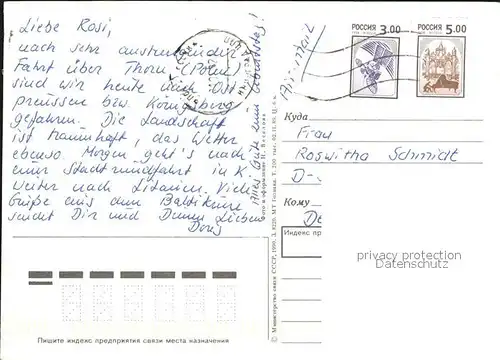 Liebe Rosi,
nach sehr anstrengender
Fahrt über Thorn (Polen)
sind wir heute nach Ost
preussen bzw. Königsberg
gefahren. Die Landschaft
ist traumhaft, das Wetter
ebenso. Morgen geht's nach
einer Stadtrundfahrt in K.
weiter nach Litauen. Viele
Grüße aus dem Baltikum
sendet Dir und Deinen Lieben
Doris
Alles Gute zum Geburtstag!
РОССИЯ 3,00
РОССИЯ 5,00
Air-mail
Куда
Frau
Roswitha Schmidt
D-
Кому
De
Индекс пре
privacy protection
Datenschutz
Пишите индекс предприятия связи места назначения
© Министерство связи СССР, 1990. З. 8220. МТ Гознака.
Фото и оформление Н.